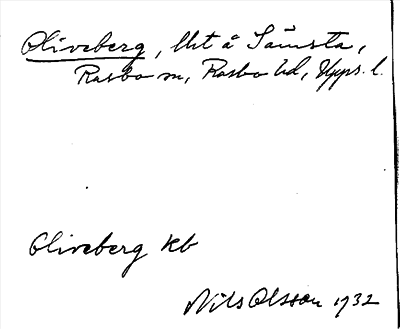 Oliveberg, lht å Sämsta,
Rasbo sn, Rasbo hd, Upps. l.
Oliveberg kb
Nils Olsson 1932